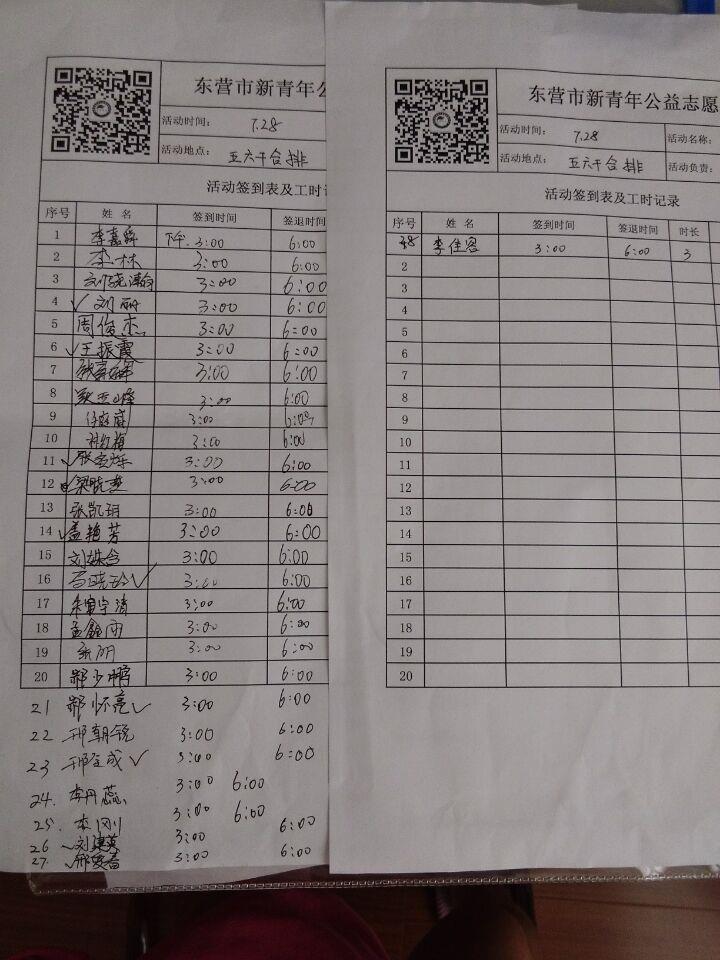 东营市新青年公
活动时间： 7.28
活动地点： 五六干合排
活动签到表及工时记
序号 姓名 签到时间 签退时间
1 李嘉舜 下午.3:00 6:00
2 李林 3:00 6:00
3 3:00 6:00
4 ✓刘丽 3:00 6:00
5 周俊杰 3:00 6:00
6 ✓王振霞 3:00 6:00
7 3:00 6:00
8 3:00 6:00
9 3:00 6:00
10 3:00 6:00
11 ✓ 3:00 6:00
12 梁晓燕 3:00 6:00
13 张凯玥 3:00 6:00
14 ✓孟艳芳 3:00 6:00
15 刘姝含 3:00 6:00
16 ✓ 3:00 6:00
17 3:00 6:00
18 孟鑫雨 3:00 6:00
19 3:00 6:00
20 郭少鹏 3:00 6:00
21 郭怀亮✓ 3:00 6:00
22 邢朝锐 3:00 6:00
23 ✓ 3:00 6:00
24. 李丹蕊 3:00 6:00
25. 李刚 3:00 6:00
26 3:00 6:00
27. 3:00 6:00
东营市新青年公益志愿
活动时间： 7.28 活动名称：
活动地点： 五六干合排 活动负责：
活动签到表及工时记录
序号 姓名 签到时间 签退时间 时长
48 李佳容 3:00 6:00 3
2
3
4
5
6
7
8
9
10
11
12
13
14
15
16
17
18
19
20